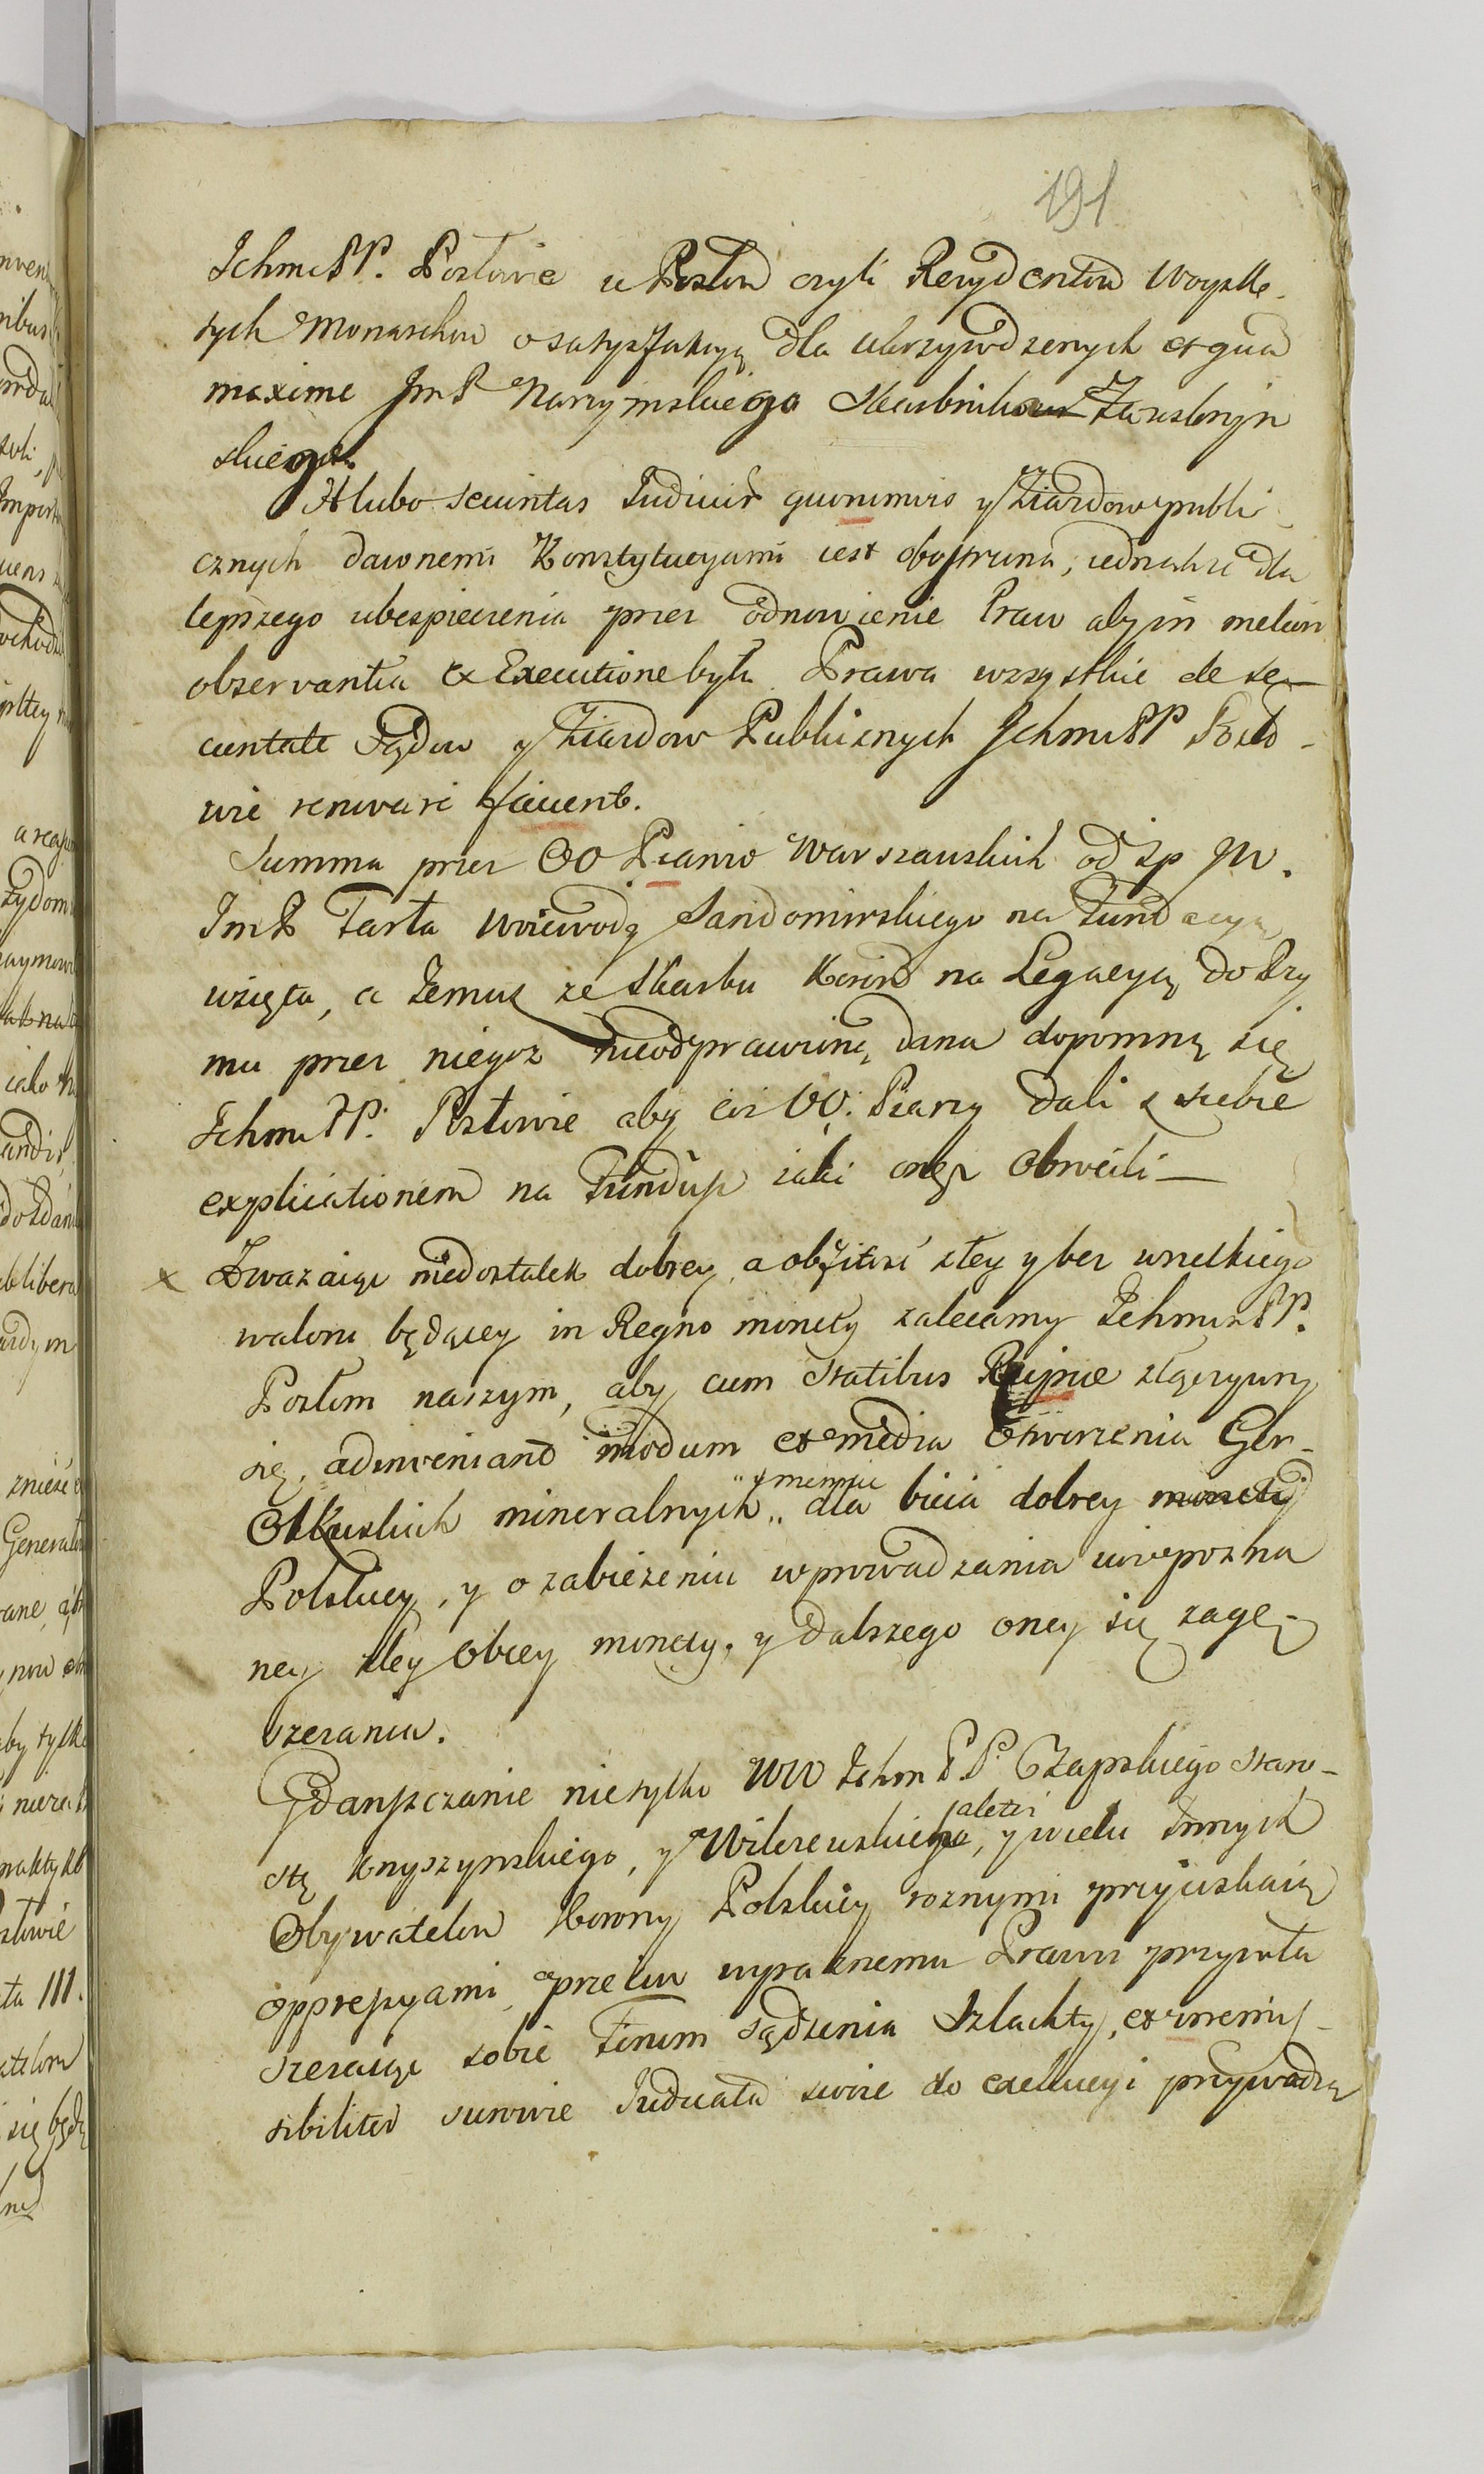 191
Ichm PP. Posłowie u Posłow czyli Rezydentow wszystk
tych Monarchow o satysfakcyą dla ukrzywdzonych et qua
maxime Jm P Narzymskiego Skarbnika Zawskrzyn
skiego.
A lubo securitas Judicior quorumvis y Ziazdow publi-
cznych dawnemi Konstytucyami iest obostrzona, iednakze dla
lepszego ubespieczenia przez odnowienie Praw aby in meliori
observantia et Executione były Prawa wszystkie de se-
curitate Sądow y Ziazdow Publicznych Ichm PP Posło-
wie renovari facient.
Summa przez OO Pianow Warszawskich od śp JW.
Jm P Tarła Woiewody Sandomirskiego na Fundacyą
wzięta, a temuz ze Skarbu Koron na Legacyą do Rzy
mu przez niegoz nieodprawioną dana dopomną się
Ichm PP. Posłowie aby ciz OO. Piarzy dali z siebie
explicationem na Fundusz iaki onęż obrocili
x Zwazaiąc niedostatek dobrey, a obfitość złey y bez wszelkiego
waloru będącey in Regno monety zalecamy Ichm PP.
Posłom naszym, aby cum statibus Reipcae złączywszy
się, adinveniant modum et media otworzenia Gor-
Olkuskich mineralnych " y mennic " dla bicia dobrey monety
Polskiey, y o zabiezeniu wprowadzania niepozna
ney złey obcey monety, y dalszego oney się zagę-
szczania.
Gdanszczanie nie tylko WW Ichm PP. Czapskiego Staro-
stę Knyszynskiego, y Wilczewskiego, aleteż y wielu innych
Obywatelow Korony Polskiey roznymi przyciskaią
oppressyami przeciw wyraznemu Prawu przywła
szczaiąc sobie Forum sądzenia Szlachty, et irremis-
sibiliter surowie Judicata swoie do exekucyi przywodzą